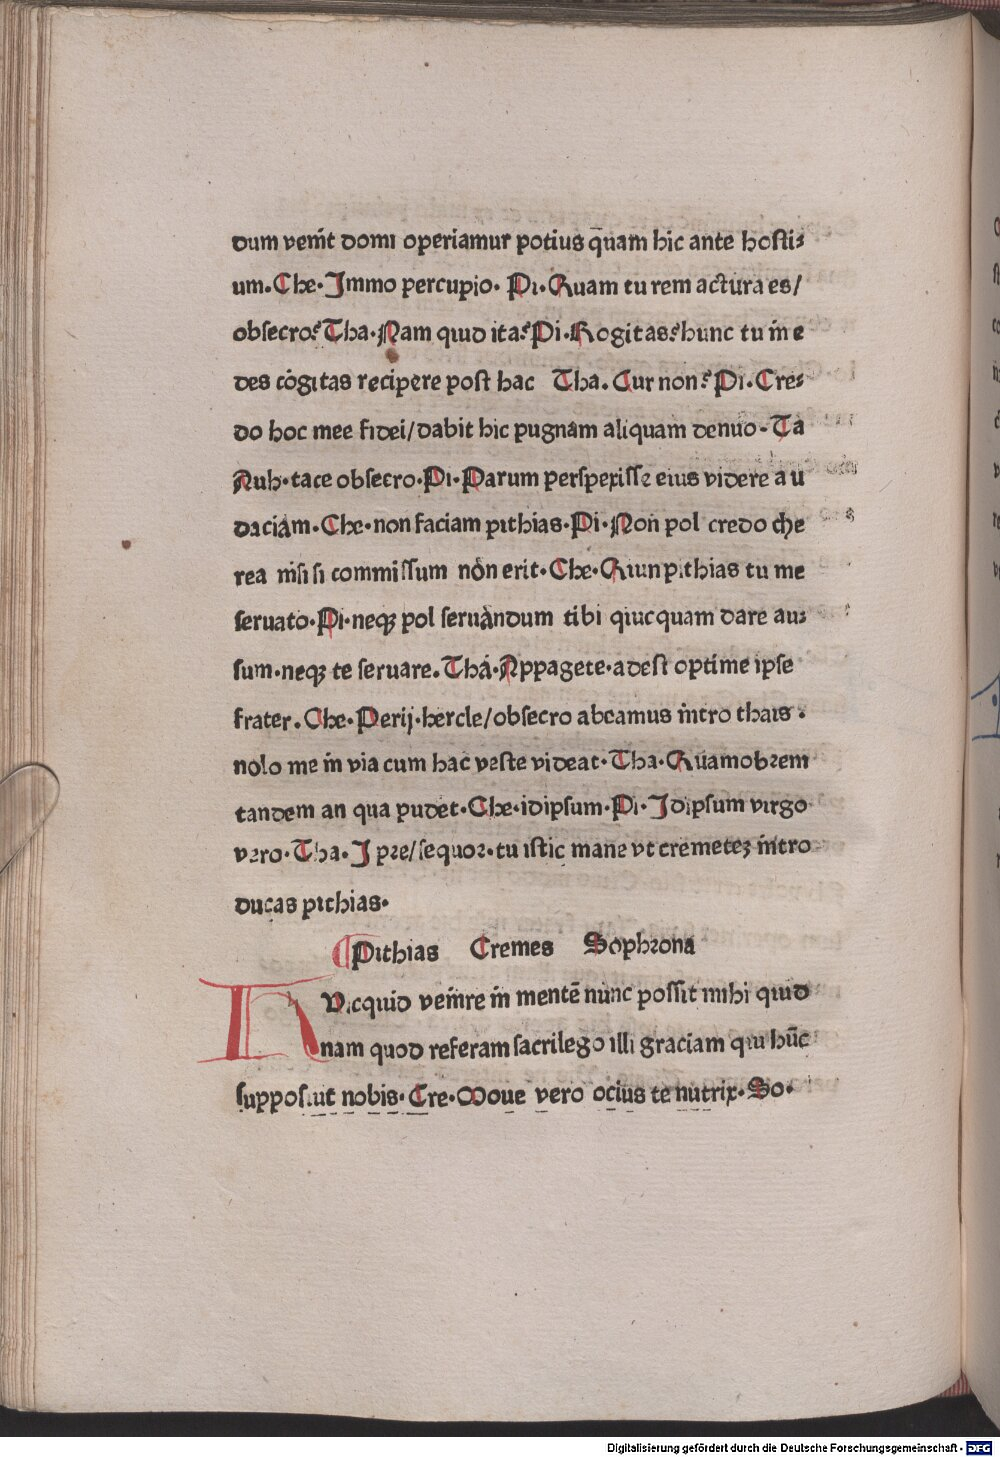 dum venit domi operiamur potius q̄uam hic ante hosti⸗
um. Che· Immo percupio· Pi· Quam tu rem actura es/
obsecro? Tha· Nam quid ita? Pi· Rogitas? hunc tu in e
des cogitas recipere post hac Tha. Cur non? Pi· Cre⸗
do hoc mee fidei/dabit hic pugnam aliquam denuo· Ta
Auh· tace obsecro· Pi· Parum perspexisse eius videre au
daciam· Che· non faciam pithias· Pi· Non pol credo che
rea nisi si commissum non erit· Che· Quin pithias tu me
seruato· Pi· neqȝ pol seruandum tibi quicquam dare au⸗
sum· neqȝ te seruare. Tha· Appagete· adest optime ipse
frater. Che· Perij· hercle/obsecro abeamus intro thais·
nolo me in via cum hac veste videat· Tha· Quamobrem
tandem an qua pudet· Che· idipsum· Pi· Idipsum virgo
vero· Tha· I pre/sequor· tu istic mane vt cremeteȝ intro
ducas pithias·
Pithias Cremes Sophrona
Q Vicquid venire in mentē nunc possit mihi quid
nam quod referam sacrilego illi graciam qui hūc
supposiuit nobis· Cre· Moue vero ocius te nutrix· So·
Digitalisierung gefördert durch die Deutsche Forschungsgemeinschaft - DFG